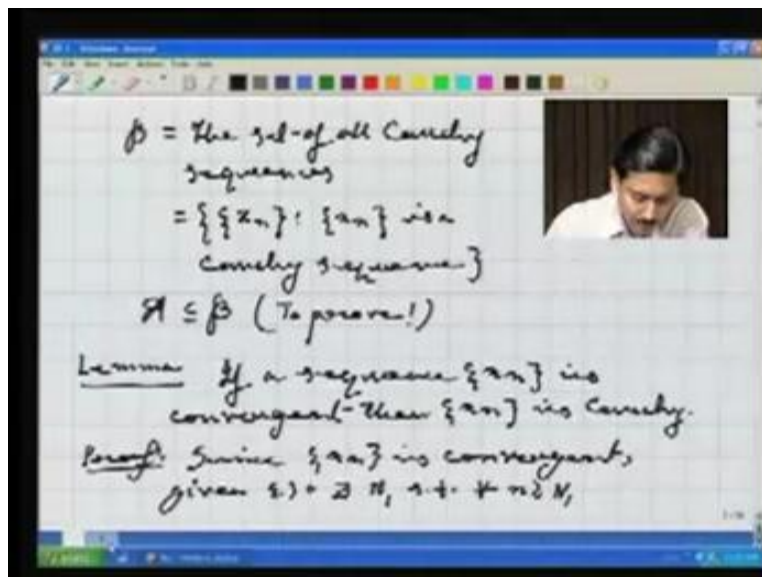 Windows Journal
B = The set of all Cauchy
sequences
= { {xn} : {xn} is a
Cauchy sequence }
A ⊆ B (To prove!)
Lemma If a sequence {xn} is
convergent then {xn} is Cauchy.
Proof: Since {xn} is convergent,
given ε > 0 ∃ N₁ s.t. ∀ n ≥ N₁